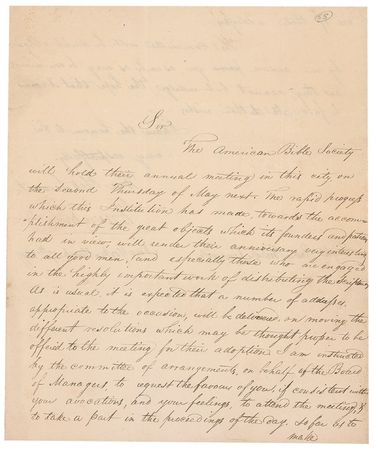 55
Sir
The American Bible Society
will hold their annual meeting in this city on
the second Thursday of May next. The rapid progress
which this Institution has made, towards the accom-
-plishment of the great objects which its founders and patrons
had in view, will render their anniversary very interesting
to all good men, and especially those who are engaged
in the highly important work of distributing the Scriptures.
As is usual, it is expected that a number of addresses,
appropriate to the occasion, will be delivered on moving the
different resolutions which may be thought proper to be
offered to the meeting for their adoption. I am instructed
by the committee of arrangements, on behalf of the Board
of Managers, to request the favour of you, if consistent with
your avocations, and your feelings, to attend the meeting, &
to take a part in the proceedings of the day, so far as to
make